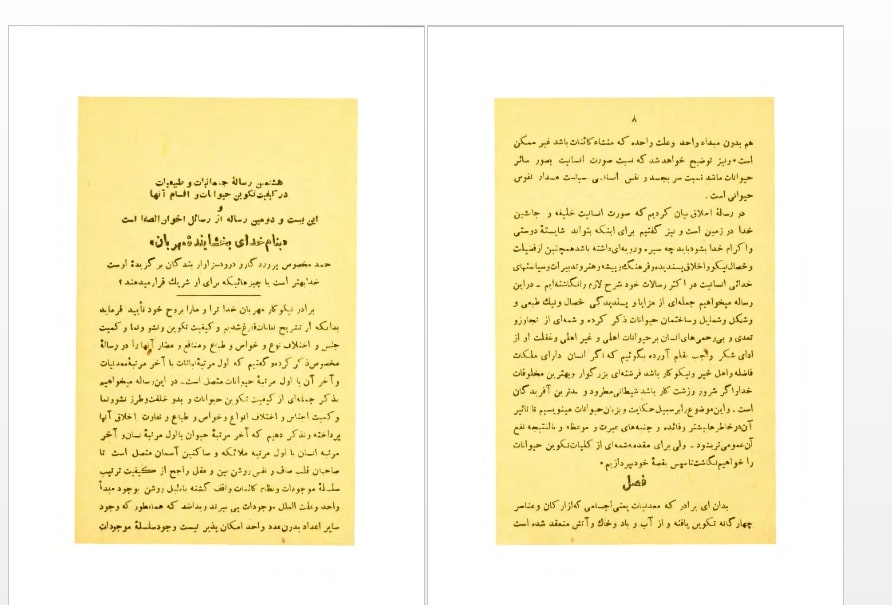 هشتمین رسالهٔ جسمانیات و طبیعیات
در کیفیت تکوین حیوانات و اقسام آنها
و
این بیست و دومین رساله از رسائل اخوان الصفا است
«بنام خدای بخشایندهٔ مهربان»
حمد مخصوص پروردگار و درود سزاوار بندگان برگزیدهٔ اوست
خدا بهتر است یا چیزهائیکه برای او شریك قرار میدهند ؟
برادر نیکوکار مهربان خدا ترا و مارا بروح خود تأیید فرماید
بدانکه از تشریح نباتات فارغ شدیم و کیفیت تکوین و نشو و نما و کمیت
جنس و اختلاف نوع و خواص و طبایع و منافع و مضار آنها را در رسالهٔ
مخصوص ذکر کرده و گفتیم که اول مرتبهٔ نباتات با آخر مرتبهٔ معدنیات
و آخر آن با اول مرتبهٔ حیوانات متصل است ـ در این رساله میخواهیم
بذکر جمله‌ای از کیفیت تکوین حیوانات و بدو خلقت و طرز نشو و نما
و کمیت اجناس و اختلاف انواع و خواص و طبایع و تفاوت اخلاق آنها
پرداخته و تذکر دهیم که آخر مرتبهٔ حیوان با اول مرتبهٔ انسان و آخر
مرتبه انسان با اول مرتبه ملائکه و ساکنین آسمان متصل است تا
صاحبان قلب صاف و نفس روشن بین و عقل راجح از کیفیت ترتیب
سلسلهٔ موجودات و نظام کائنات واقف گشته با دلیل روشن بوجود مبدأ
واحد و علت العلل موجودات پی ببرند و بدانند که همانطور که وجود
سایر اعداد بدون عدد واحد امکان پذیر نیست وجود سلسلهٔ موجودات
۸
هم بدون مبداء واحد وعلت واحده که منشاء کائنات باشد غیر ممکن
است • ونیز توضیح خواهد شد که نسبت صورت انسانیت بصور سائر
حیوانات مانند نسبت سر بجسد و نفس انسانی نفوس
حیوانی است .
در رسالهٔ اخلاق بیان کردیم که صورت انسانیت خلیفه و جانشین
خدا در زمین است و نیز گفتیم برای اینکه بتواند شایستهٔ دوستی
واکرام خدا بشود باید چه سیره ورویه‌ای داشته باشد همچنین از فضیلت
وخصال نیکو واخلاق پسندیده وفرهنگ وپیشه وهنر وتدبیرات وسیاستهای
خدائی انسانیت در اکثر رسالات خود شرح لازم رانگاشته‌ایم ـ دراین
رساله میخواهیم جمله‌ای از مزایا و پسندیدگی خصال ونیك طبعی و
وشکل وشمایل وساختمان حیوانات ذکر کرده و شمه‌ای از تجاوز و
تعدی و بی‌رحمی‌های انسان بر حیوانات اهلی و غیر اهلی وغفلت او از
ادای شکر واجب بقلم آورده بگوئیم که اگر انسان دارای ملکات
فاضله واهل خیر ونیکوکار باشد فرشته‌ای بزرگوار وبهترین مخلوقات
خدا واگر شرور وزشت کار باشد شیطانی مطرود و بدترین آفریدگان
است ـ واین موضوع رابرسبیل حکایت وبزبان حیوانات مینویسیم تا تاثیر
آن درخاطرها بیشتر وفائده و جنبه‌های عبرت و موعظه و بالنتیجه نفع
آن عمومی‌تر بشود ـ ولی برای مقدمه شمه‌ای از کلیات تکوین حیوانات
را خواهیم نگاشت تا سپس بقصهٔ خود بپردازیم •
فصل
بدان ای برادر که معدنیات یعنی اجسامی که از ارکان وعناصر
چهارگانه تکوین یافته و از آب و باد وخاك وآتش منعقد شده است